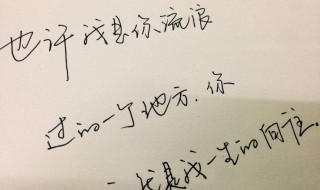 也许我是你流浪
过的一个地方.你
一我是我一生的向往.